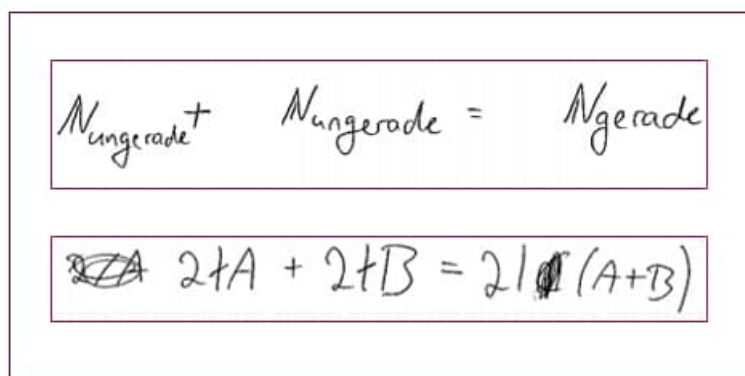 ℕungerade + ℕungerade = ℕgerade
2∤A + 2∤B = 2|(A+B)